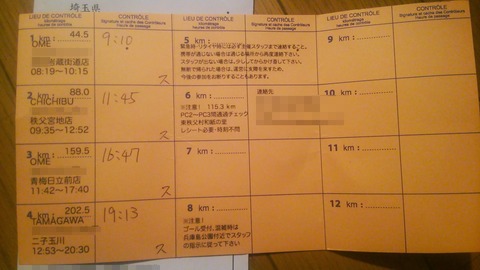 埼玉県
LIEU DE CONTRÔLE
kilométrage
heures de passage
Signature et cachet des Contrôleurs
heure de passage
LIEU DE CONTRÔLE
kilométrage
heures de passage
Signature et cachet des Contrôleurs
heure de passage
LIEU DE CONTRÔLE
kilométrage
heures de passage
Signature et cachet des Contrôleurs
heure de passage
1 km : 44.5
OME
蔵街道店
08:19～10:15
9:10
ス
2 km : 88.0
CHICHIBU
秩父宮地店
09:35～12:52
11:45
ス
3 km : 159.5
OME
青梅日立前店
11:42～17:40
16:47
ス
4 km : 202.5
TAMAGAWA
二子玉川
12:53～20:30
19:13
ス
5 km :
緊急時・リタイヤ時には必ず主催スタッフまで連絡すること。
携帯が通じない場合は通じる場所から再度連絡下さい。
スタッフが出ない場合は、少ししてからかけ直して下さい。
無断で帰られた場合は、運営に支障を来すため、
今後の参加をお断りすることもあります。
6 km :
※注意! 115.3 km
PC2～PC3間通過チェック
東秩父村和紙の里
レシート必要・時刻不問
連絡先
7 km :
8 km :
※注意!
ゴール受付、混雑時は
兵庫島公園付近でスタッフ
の指示に従って下さい
9 km :
10 km :
11 km :
12 km :